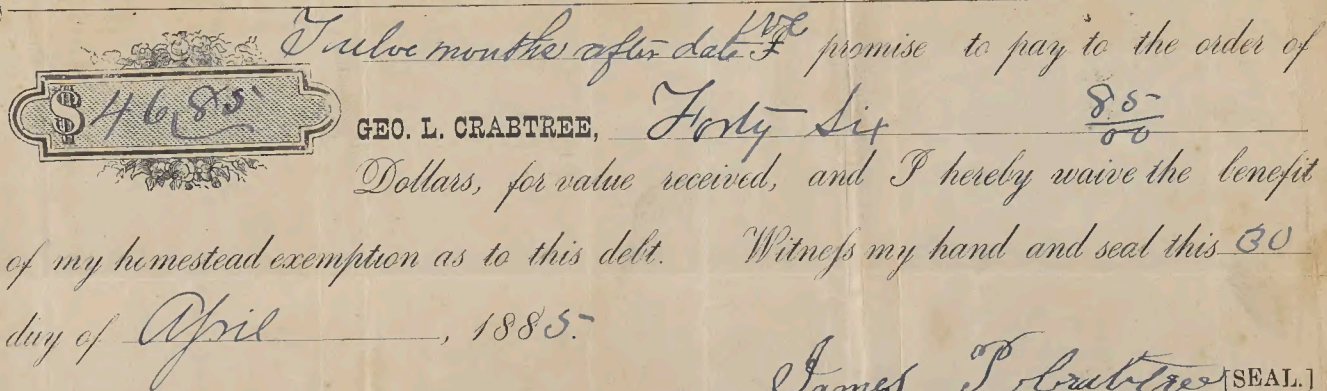 Twelve months after date We promise to pay to the order of
$46.85 GEO. L. CRABTREE, Forty Six 85/00
Dollars, for value received, and I hereby waive the benefit
of my homestead exemption as to this debt. Witneſs my hand and seal this 30
day of April, 1885.
James P Crabtree [SEAL.]